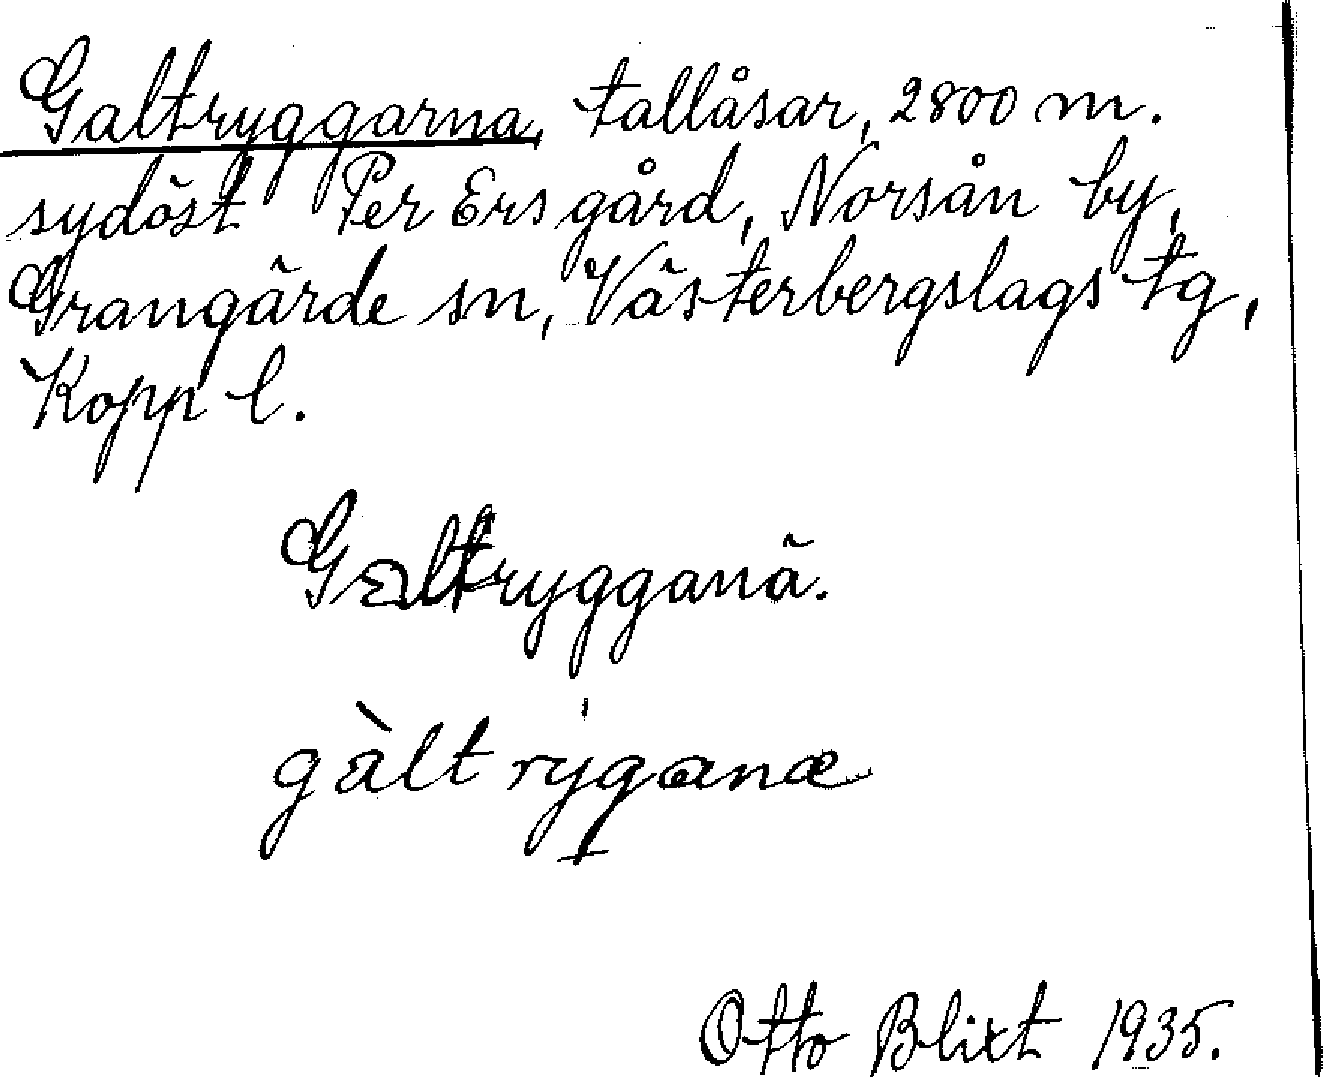 Galtryggarna, tallåsar, 2800 m.
sydöst Per Ers gård, Norsån by,
Grangärde sn, Västerbergslags tg,
Kopp l.
Galtrygganä.
gàltryganæ
Otto Blixt 1935.